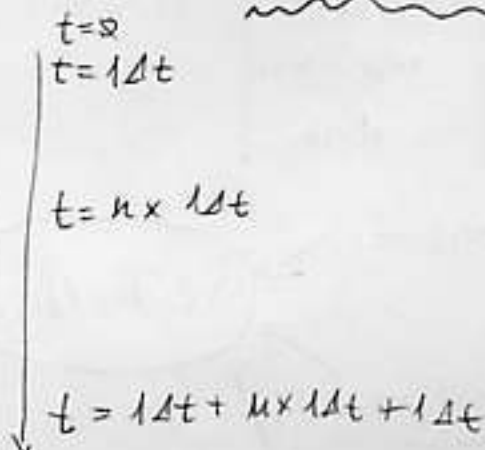 t=0
t=1Δt
t= n x 1Δt
t = 1Δt + n x 1Δt + 1Δt